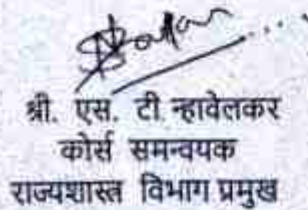 श्री. एस. टी. न्हावेलकर
कोर्स समन्वयक
राज्यशास्त्र विभाग प्रमुख